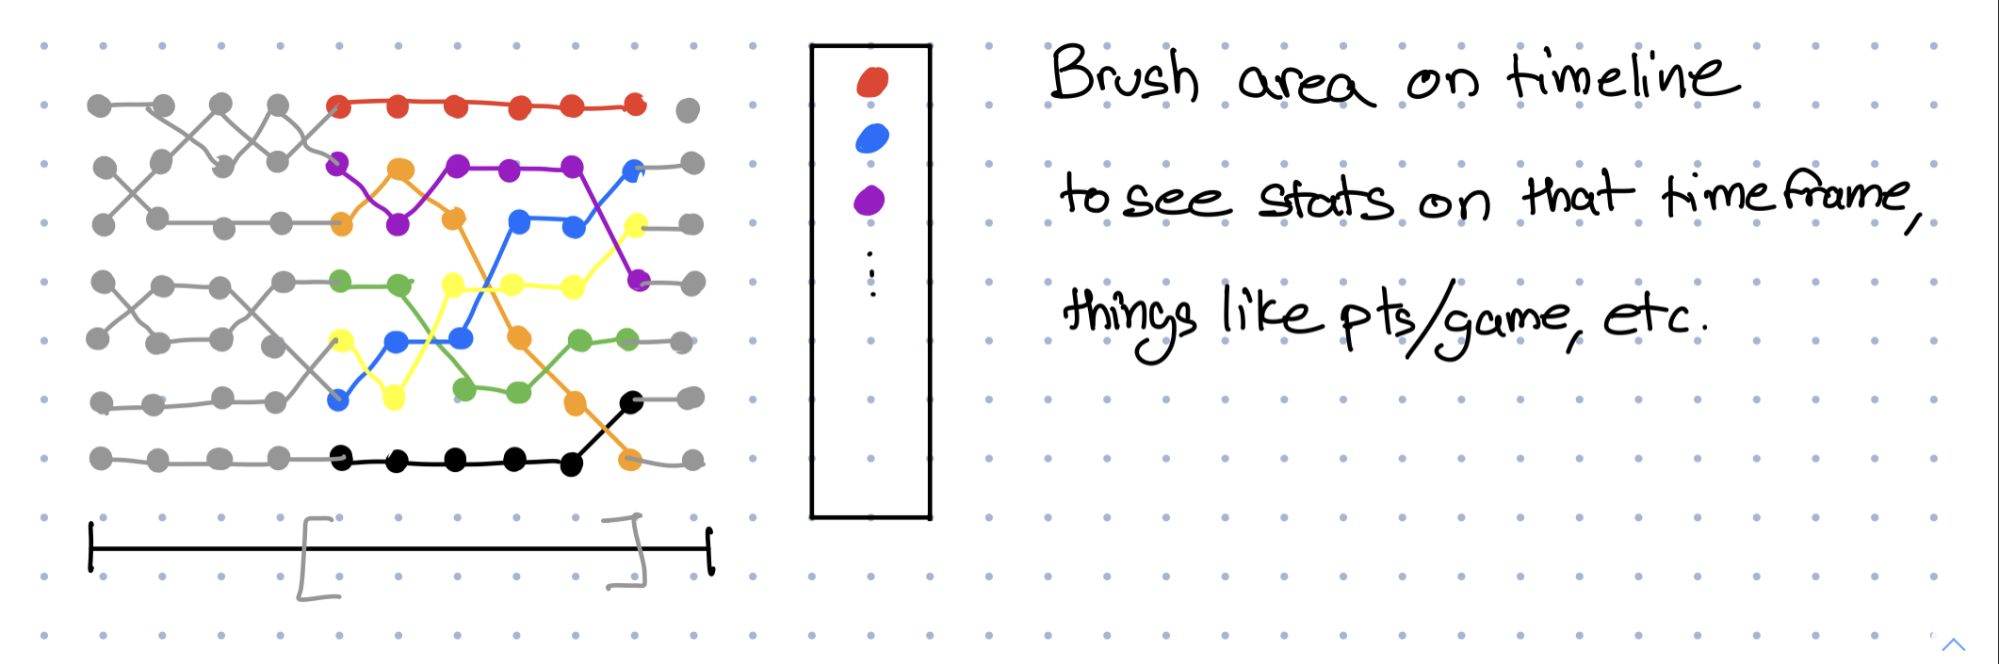 Brush area on timeline
to see stats on that timeframe,
things like pts/game, etc.